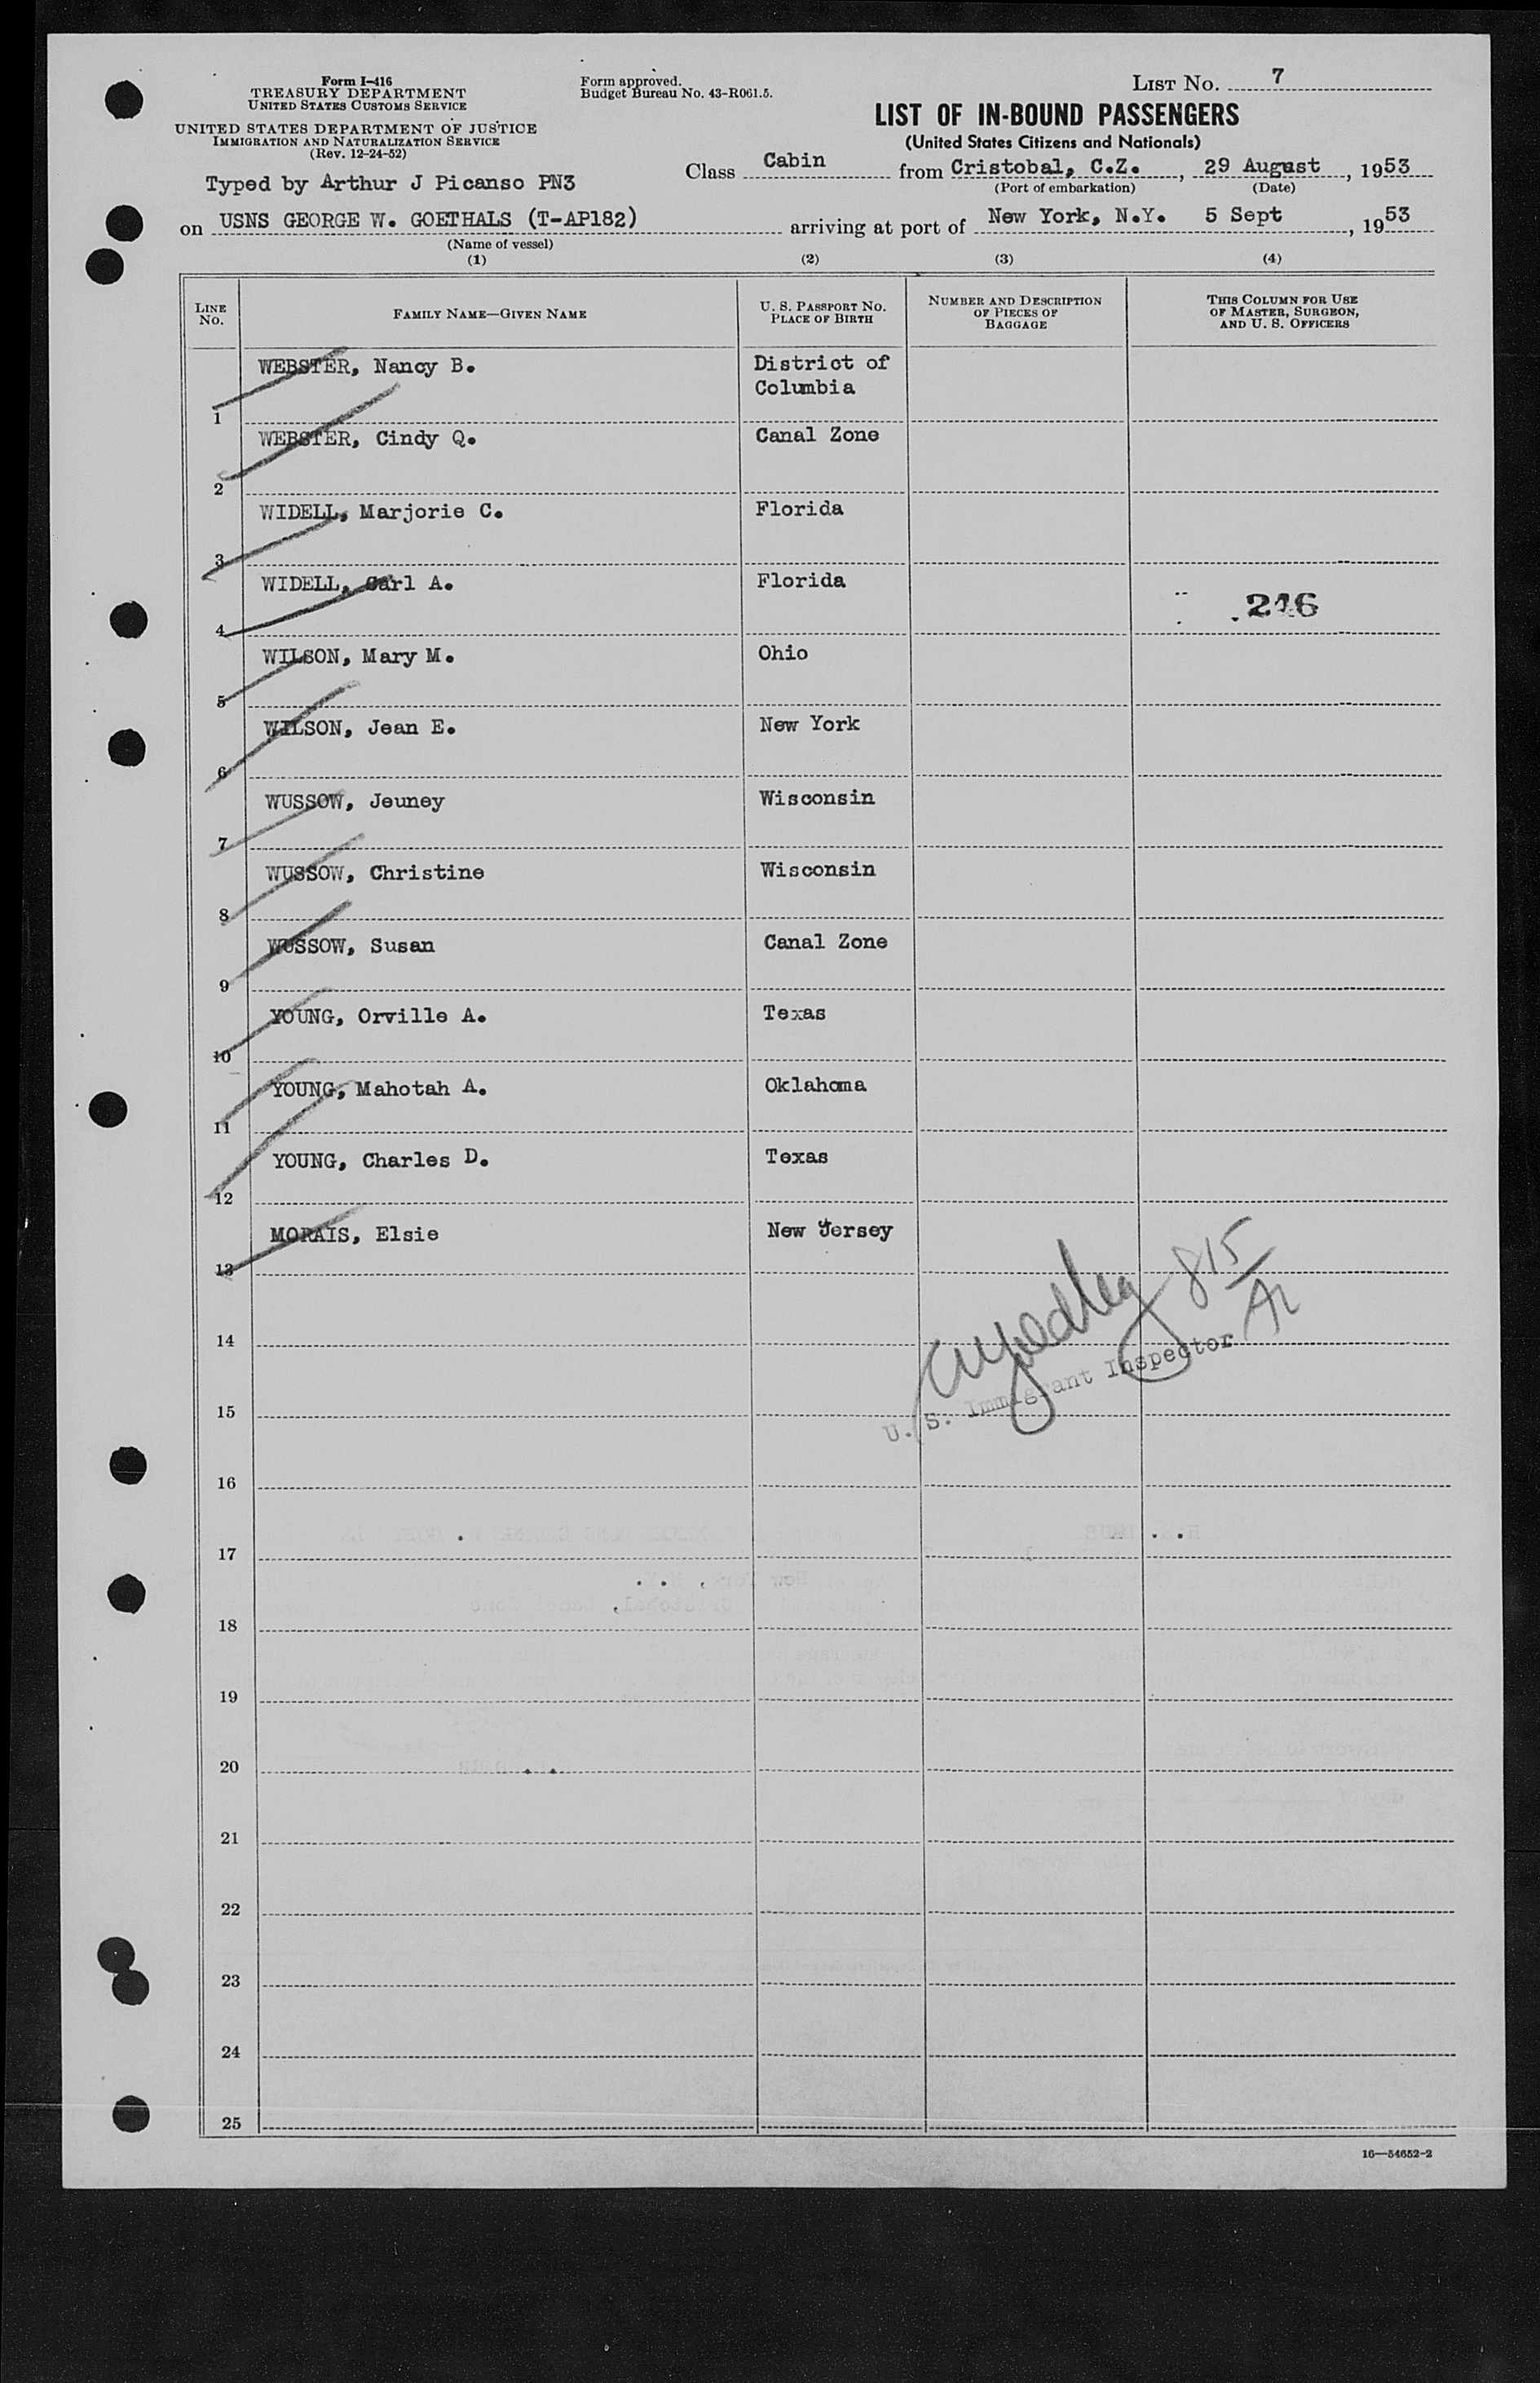 Form I-416
TREASURY DEPARTMENT
UNITED STATES CUSTOMS SERVICE
UNITED STATES DEPARTMENT OF JUSTICE
IMMIGRATION AND NATURALIZATION SERVICE
(Rev. 12-24-52)
Form approved.
Budget Bureau No. 43-R061.5.
LIST No. 7
LIST OF IN-BOUND PASSENGERS
(United States Citizens and Nationals)
Typed by Arthur J Picanso PN3
Class Cabin from Cristobal, C.Z., 29 August, 1953
(Port of embarkation) (Date)
on USNS GEORGE W. GOETHALS (T-AP182) arriving at port of New York, N.Y. 5 Sept, 1953
(Name of vessel)
(1) (2) (3) (4)
LINE No. FAMILY NAME—GIVEN NAME U. S. PASSPORT NO. PLACE OF BIRTH NUMBER AND DESCRIPTION OF PIECES OF BAGGAGE THIS COLUMN FOR USE OF MASTER, SURGEON, AND U. S. OFFICERS
1 WEBSTER, Nancy B. District of Columbia
2 WEBSTER, Cindy Q. Canal Zone
3 WIDELL, Marjorie C. Florida
4 WIDELL, Carl A. Florida 246
5 WILSON, Mary M. Ohio
6 WILSON, Jean E. New York
7 WUSSOW, Jeuney Wisconsin
8 WUSSOW, Christine Wisconsin
9 WUSSOW, Susan Canal Zone
10 YOUNG, Orville A. Texas
11 YOUNG, Mahotah A. Oklahoma
12 YOUNG, Charles D. Texas
13 MORAIS, Elsie New Jersey
815
14
U. S. Immigrant Inspector
15
16
17
18
19
20
21
22
23
24
25
16—54652-2